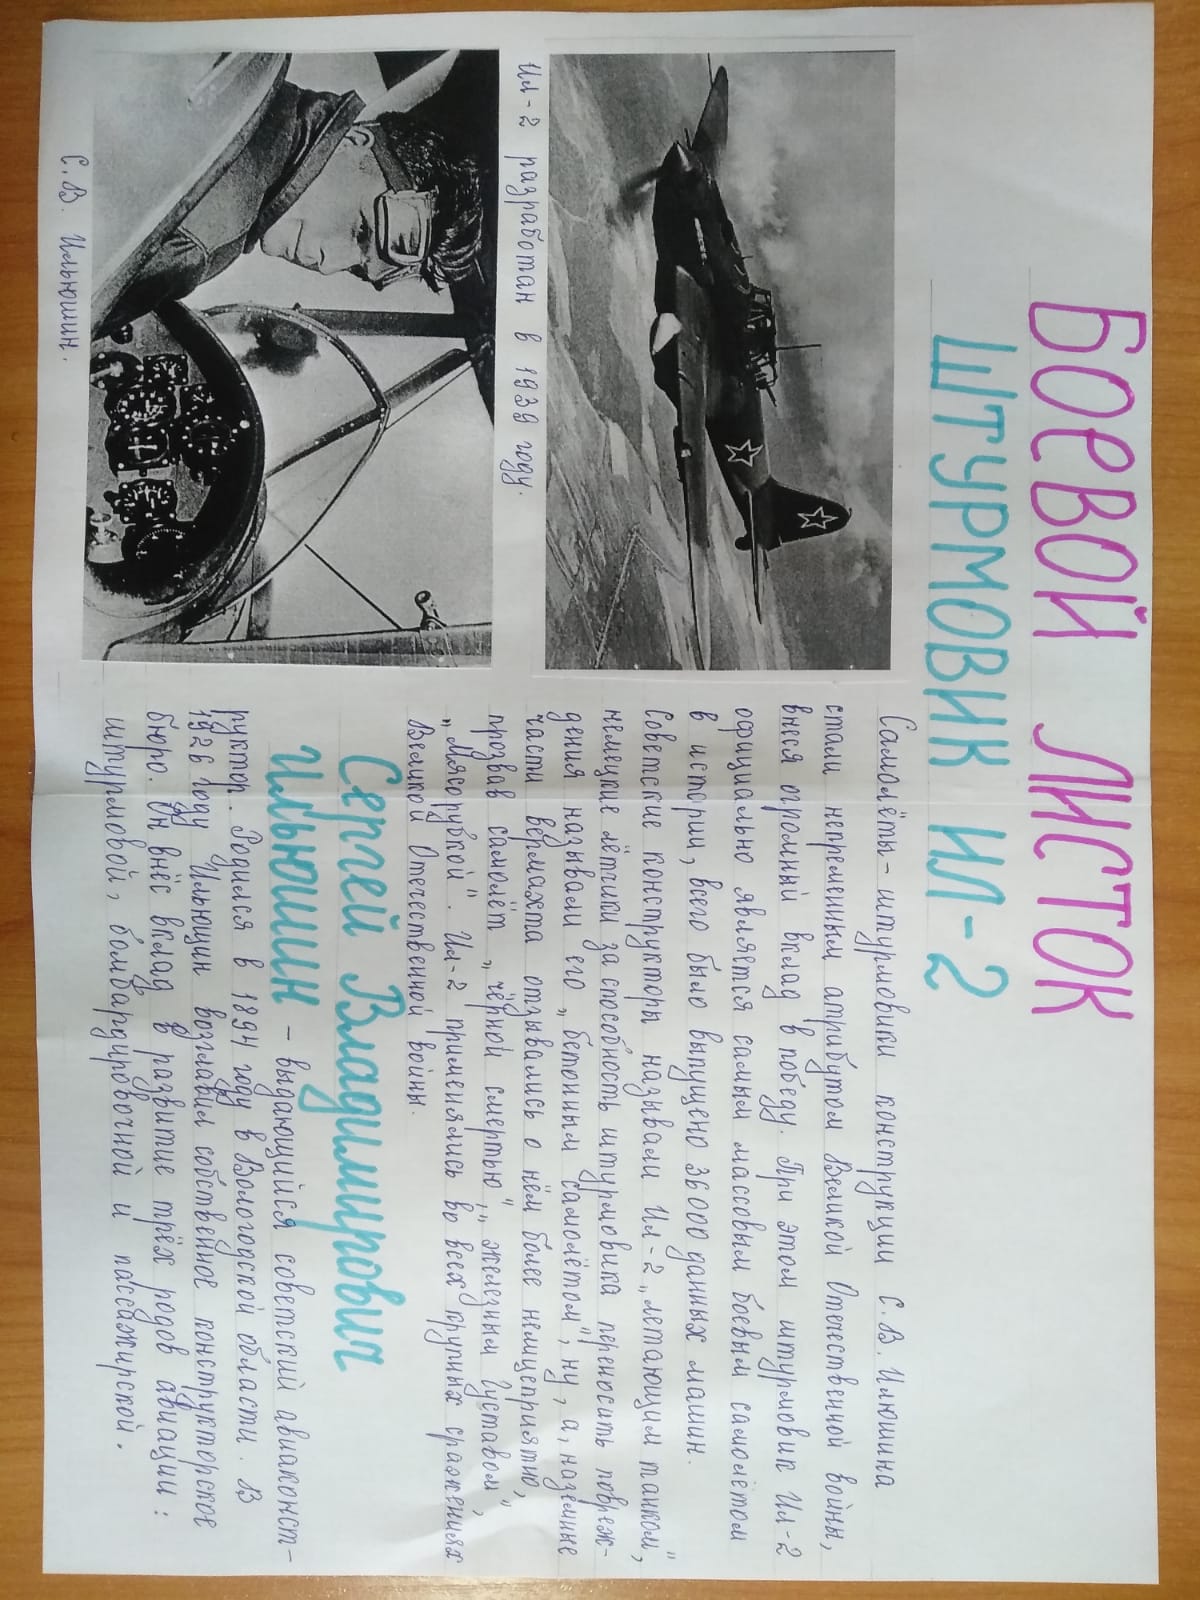 БОЕВОЙ ЛИСТОК
ШТУРМОВИК ИЛ-2
Ил-2 разработан в 1939 году.
С.В. Ильюшин.
Самолёты-штурмовики конструкции С.В. Ильюшина
стали непременным атрибутом Великой Отечественной войны,
внеся огромный вклад в победу. При этом штурмовик Ил-2
официально является самым массовым боевым самолётом
в истории, всего было выпущено 36000 данных машин.
Советские конструкторы называли Ил-2 „летающим танком",
немецкие лётчики за способность штурмовика переносить повреж-
дения называли его „бетонным самолётом", ну, а, наземные
части вермахта отзывались о нём более нелицеприятно,
прозвав самолёт „чёрной смертью", „железным Густавом",
„Мясорубкой". Ил-2 применялись во всех крупных сражениях
Великой Отечественной войны.
Сергей Владимирович
Ильюшин - выдающийся советский авиаконст-
руктор. Родился в 1894 году в Вологодской области. В
1926 году Ильюшин возглавил собственное конструкторское
бюро. Он внёс вклад в развитие трёх родов авиации:
штурмовой, бомбардировочной и пассажирской.